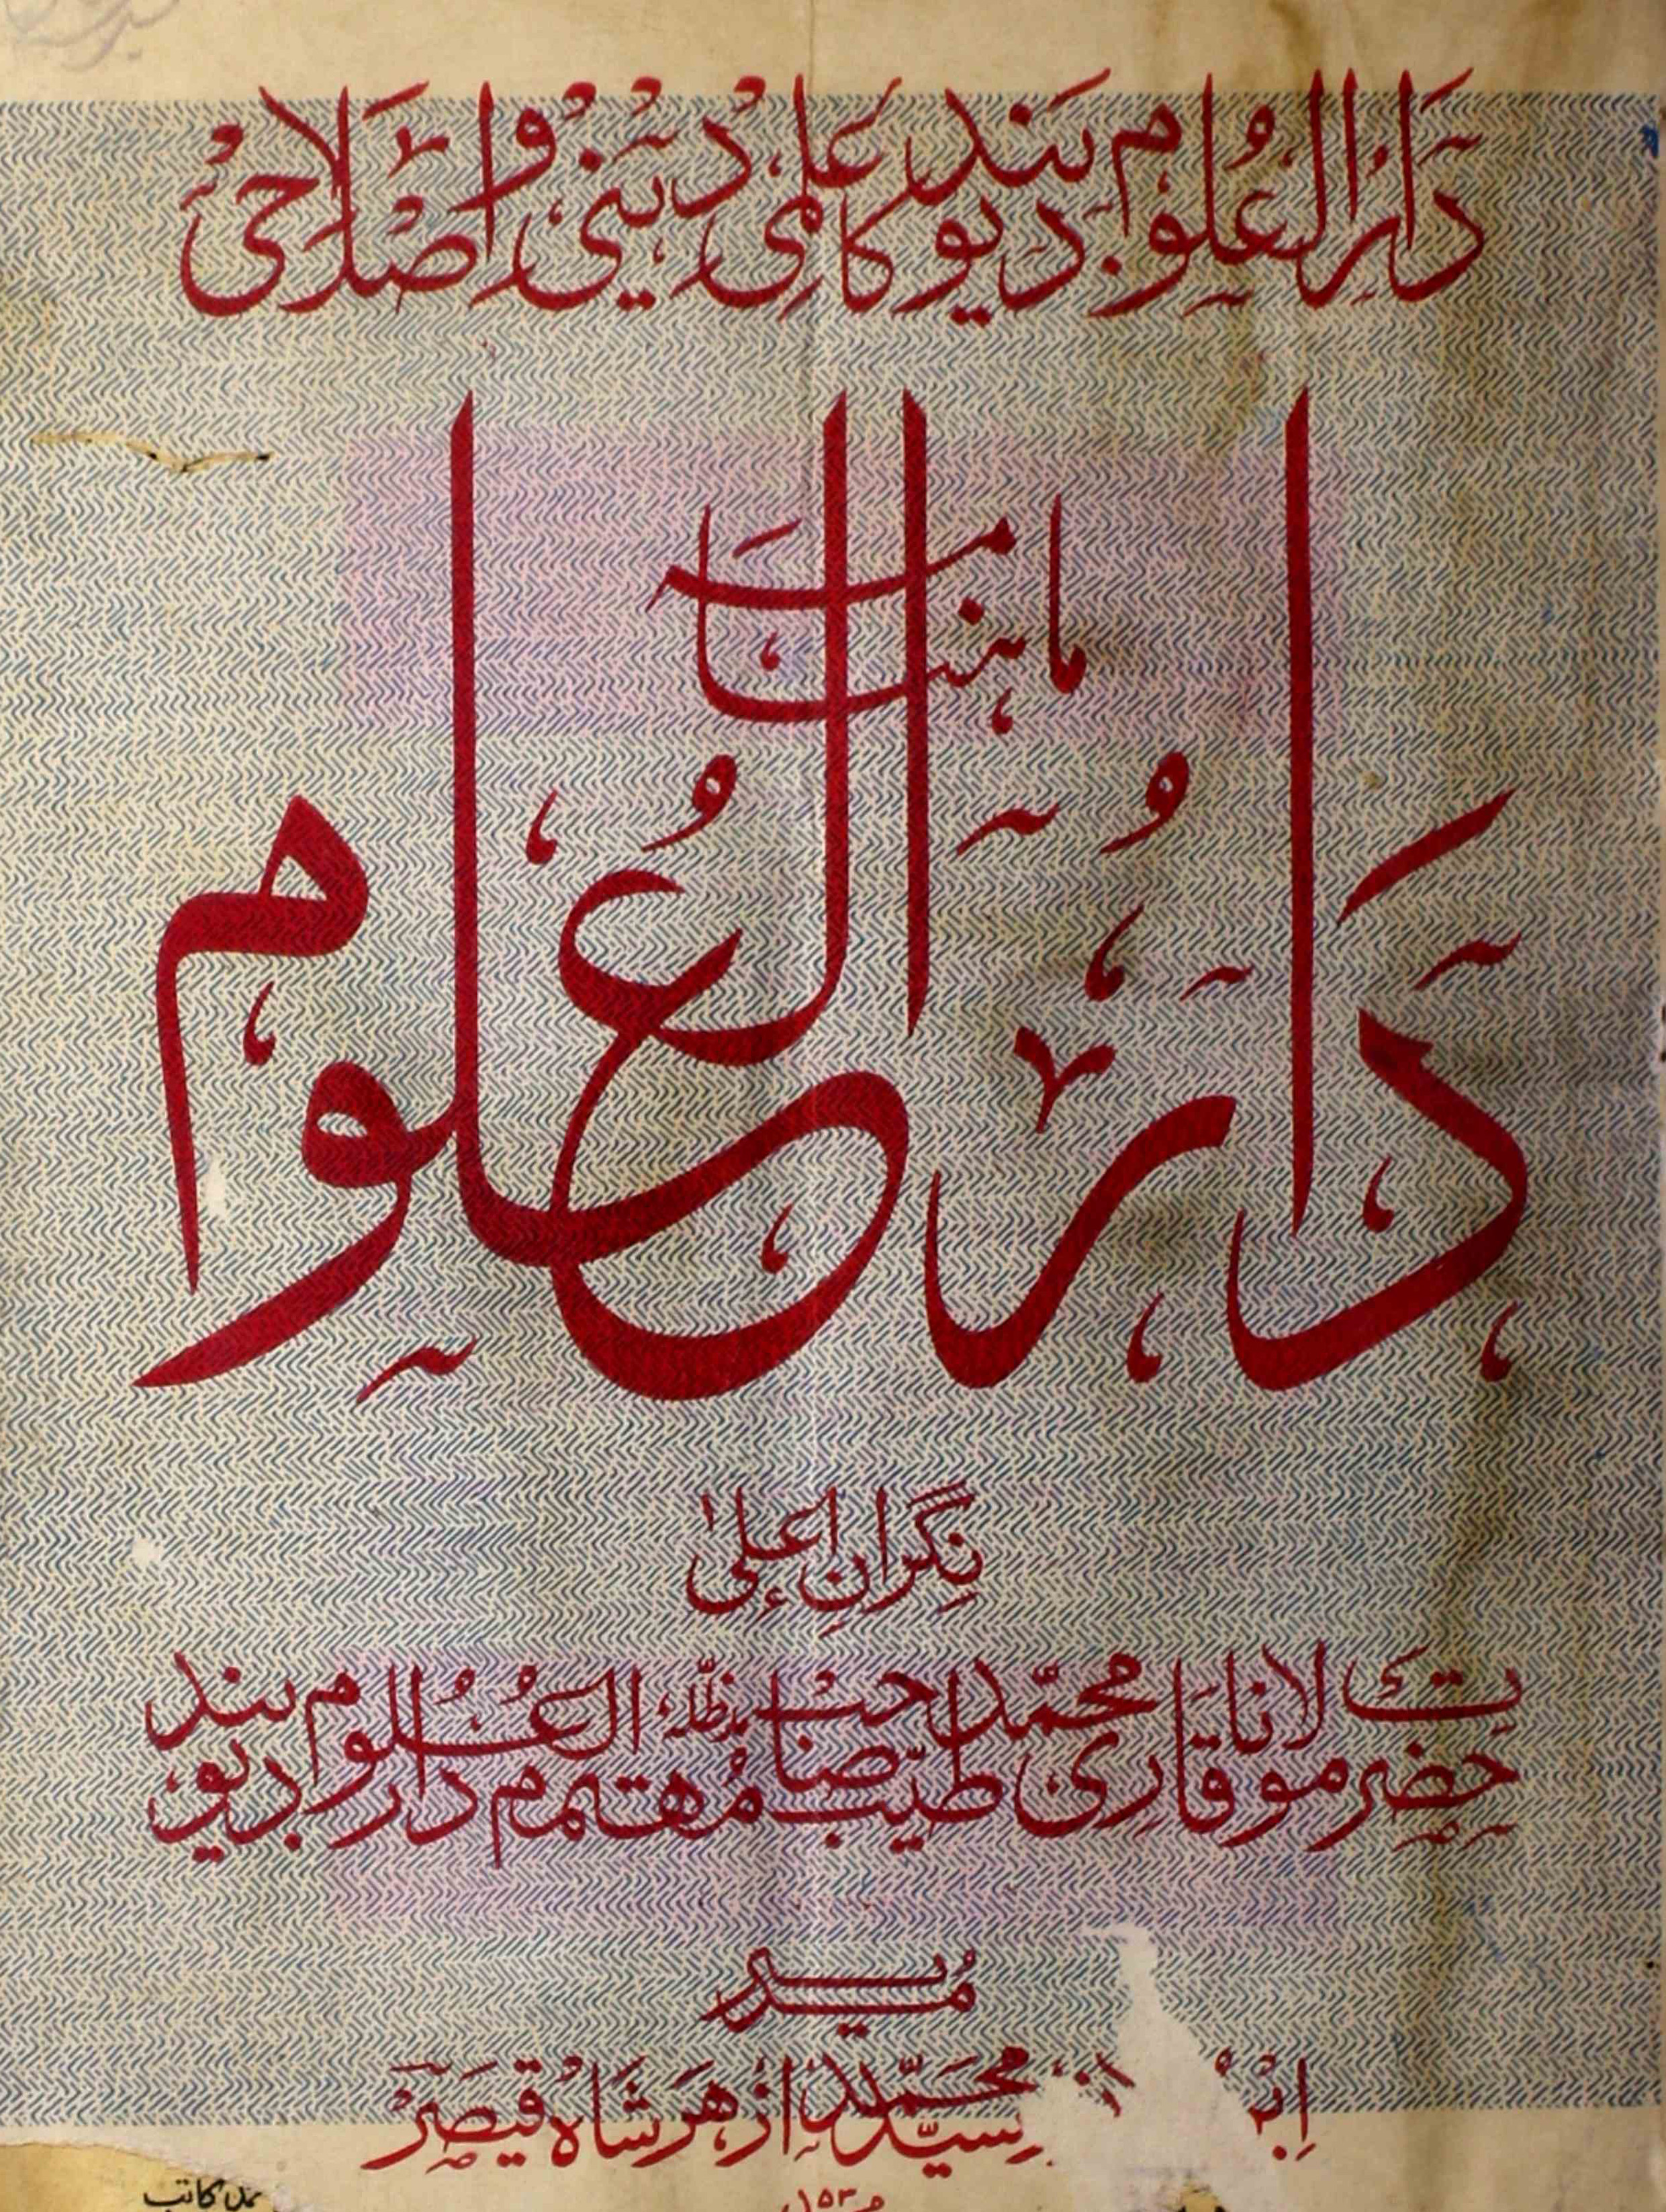 دار العلوم دیوبند کا علمی دینی و اصلاحی
ماہنامہ
دار العلوم
نگران اعلیٰ
حضرت مولانا قاری محمد طیب صاحب مدظلہ مہتمم دار العلوم دیوبند
مدیر
سید محمد ازہر شاہ قیصر
کاتب